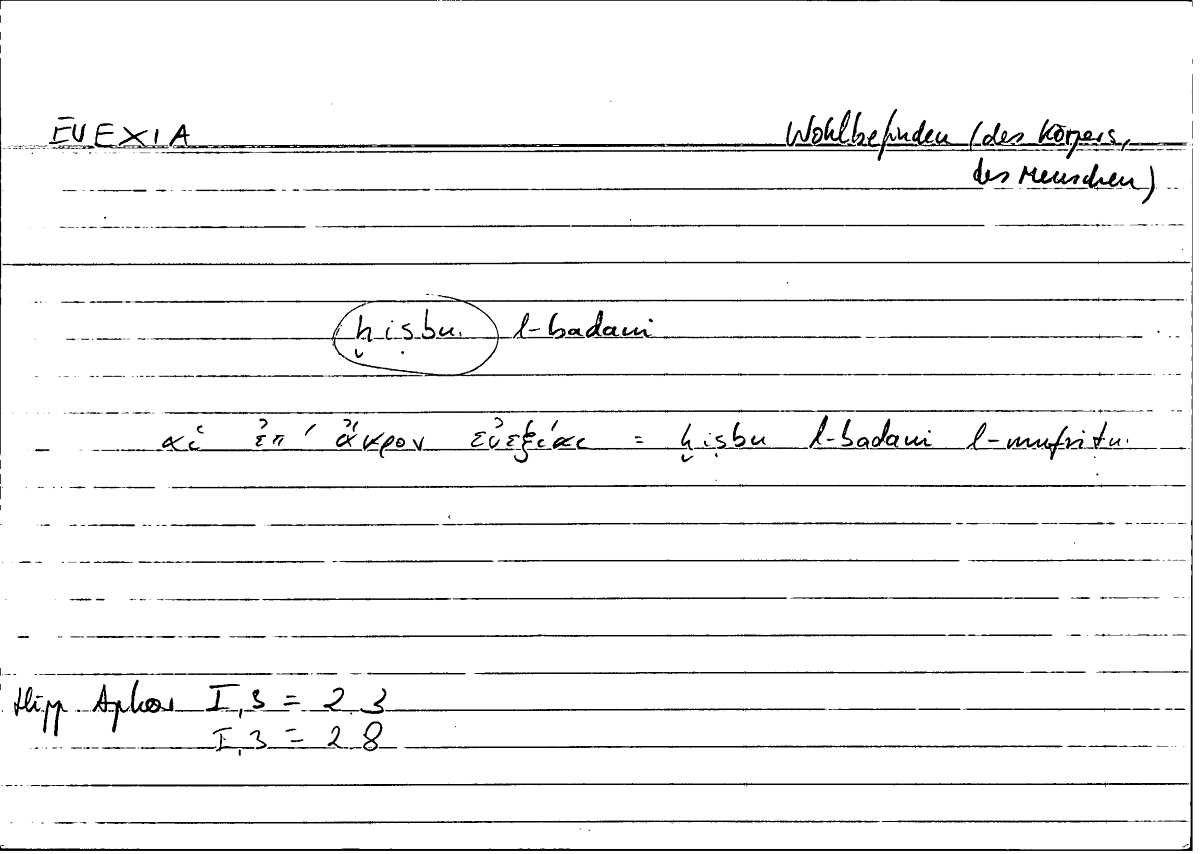 EUEXIA Wohlbefinden (des Körpers,
des Menschen)
ḫiṣbu l-badani
αἱ ἐπ' ἄκρον εὐεξίαι = ḫiṣbu l-badani l-mufriṭu.
Hipp Aphor I,3 = 2 3
I,3 = 2 8